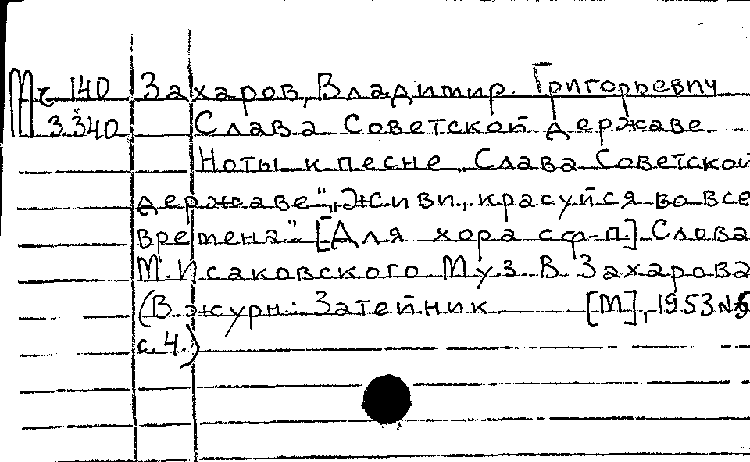 Мч 140 Захаров, Владимир Григорьевич
3 340 Слава Советской державе
Ноты к песне Слава Советской
державе", "Живи, красуйся во все
времена" [Для хора с ф-п] Слова
М. Исаковского Муз. В Захарова
(В журн: Затейник [М], 1953 №5
с. 4.)